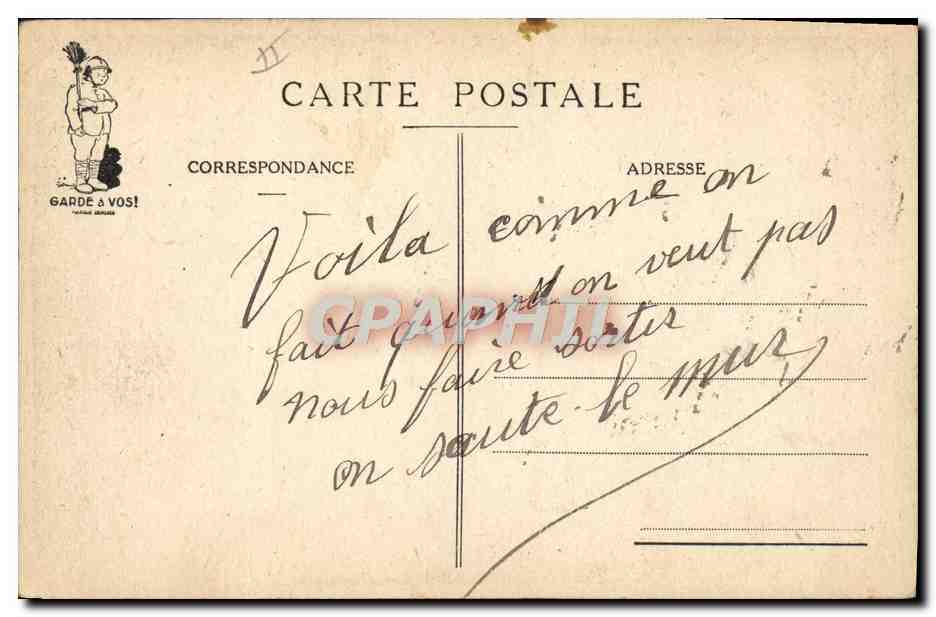 II
CARTE POSTALE
CORRESPONDANCE
ADRESSE
GARDE à VOS!
Voila comme on
fait quand on veut pas
nous faire sortir
on saute le mur
CPAPHIL